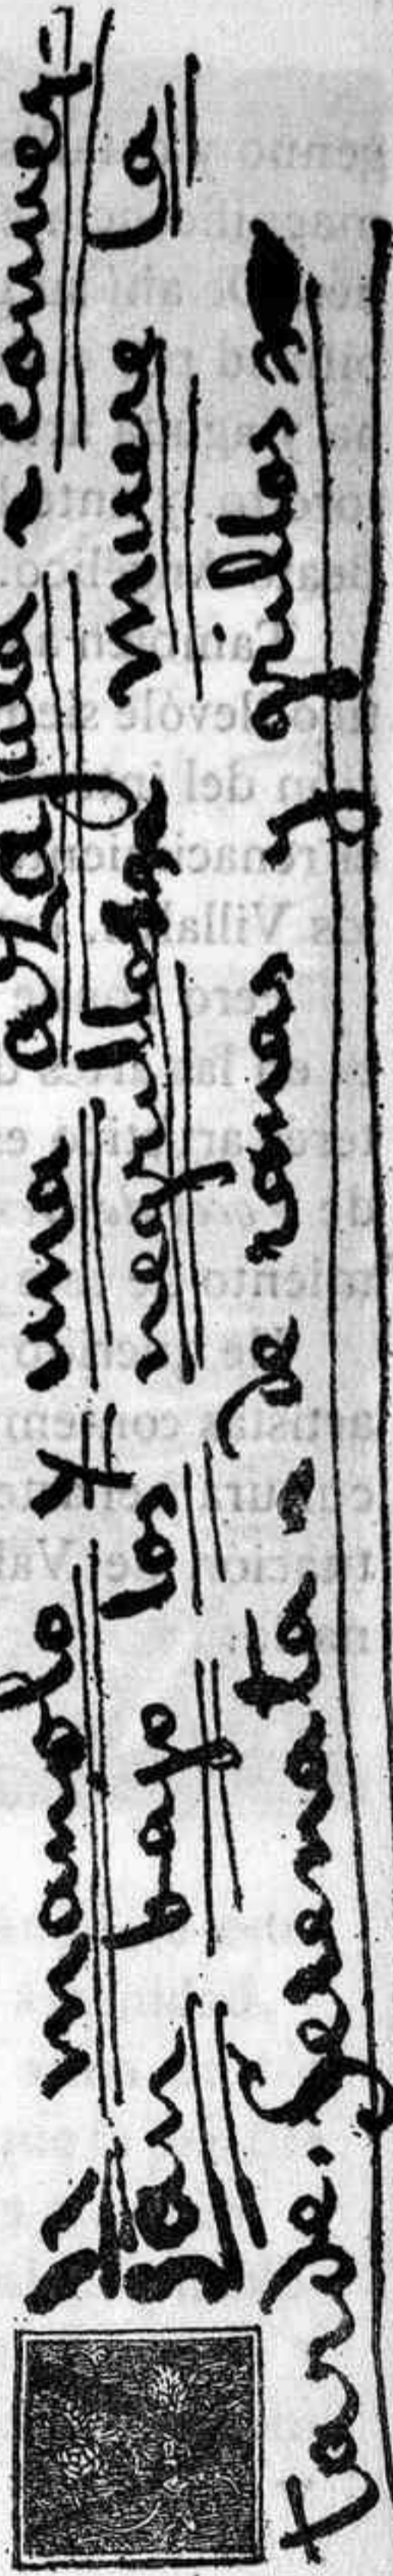 Un manolo y una conver-
san bajo los negrillos muere la
tarde. Serenata - de ranas y grillos